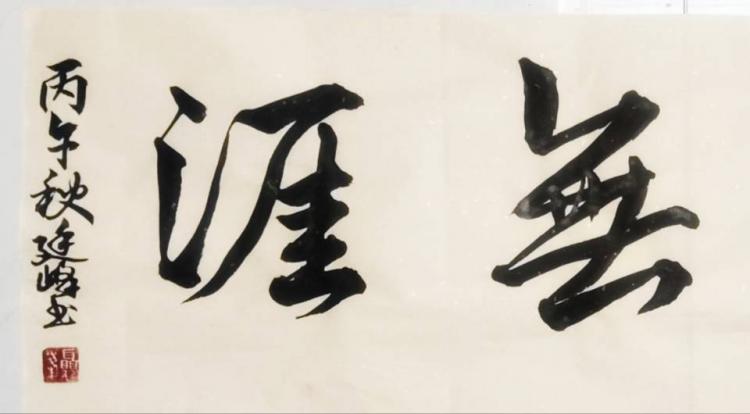 無涯
丙午秋延峰书